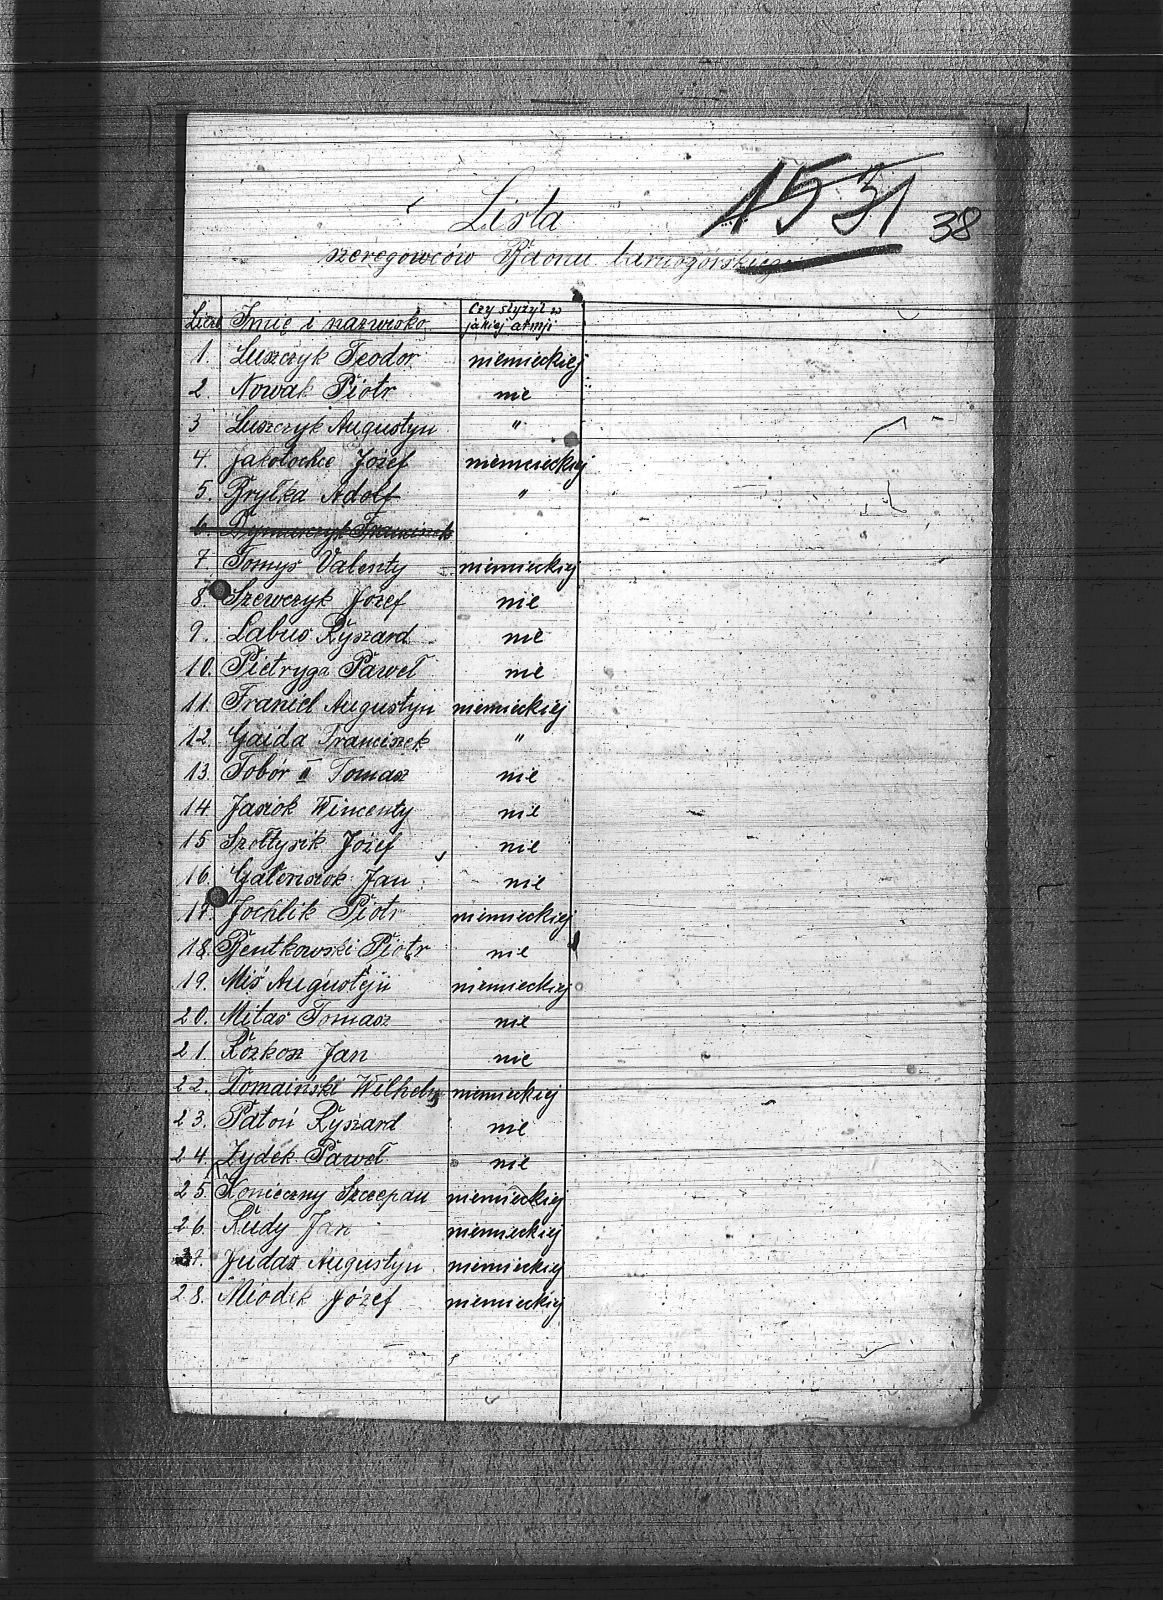 Lista
1531
38
szeregowców Baonu tarnogórskiego
Liczb Imię i nazwisko Czy służył w jakiej armji
1. Luszczyk Teodor niemieckiej
2 Nowak Piotr nie
3 Luszczyk Augustyn "
4. Józef niemieckiej
5. Bryłka Adolf "
6. Franciszek
7. Tomys Valenty niemieckiej
8. Szewczyk Józef nie
9. Labus Ryszard nie
10. Pietryga Paweł nie
11. Franiel Augustyn niemieckiej
12. Gaida Franciszek "
13. Tobór II Tomasz nie
14 Jasiok Wincenty nie
15 Szołtysik Józef nie
16. Jan nie
17. Jochlik Piotr niemieckiej
18. Bentkowski Piotr nie
19. Miś Augustyn niemieckiej
20. Mitas Tomasz nie
21. Rozkosz Jan nie
22. Domaiński Wilhelm niemieckiej
23. Patoń Ryszard nie
24. Zydek Paweł nie
25. Konieczny Szczepan niemieckiej
26. Rudy Jan niemieckiej
27. Judas Augustyn niemieckiej
28. Miodek Józef niemieckiej